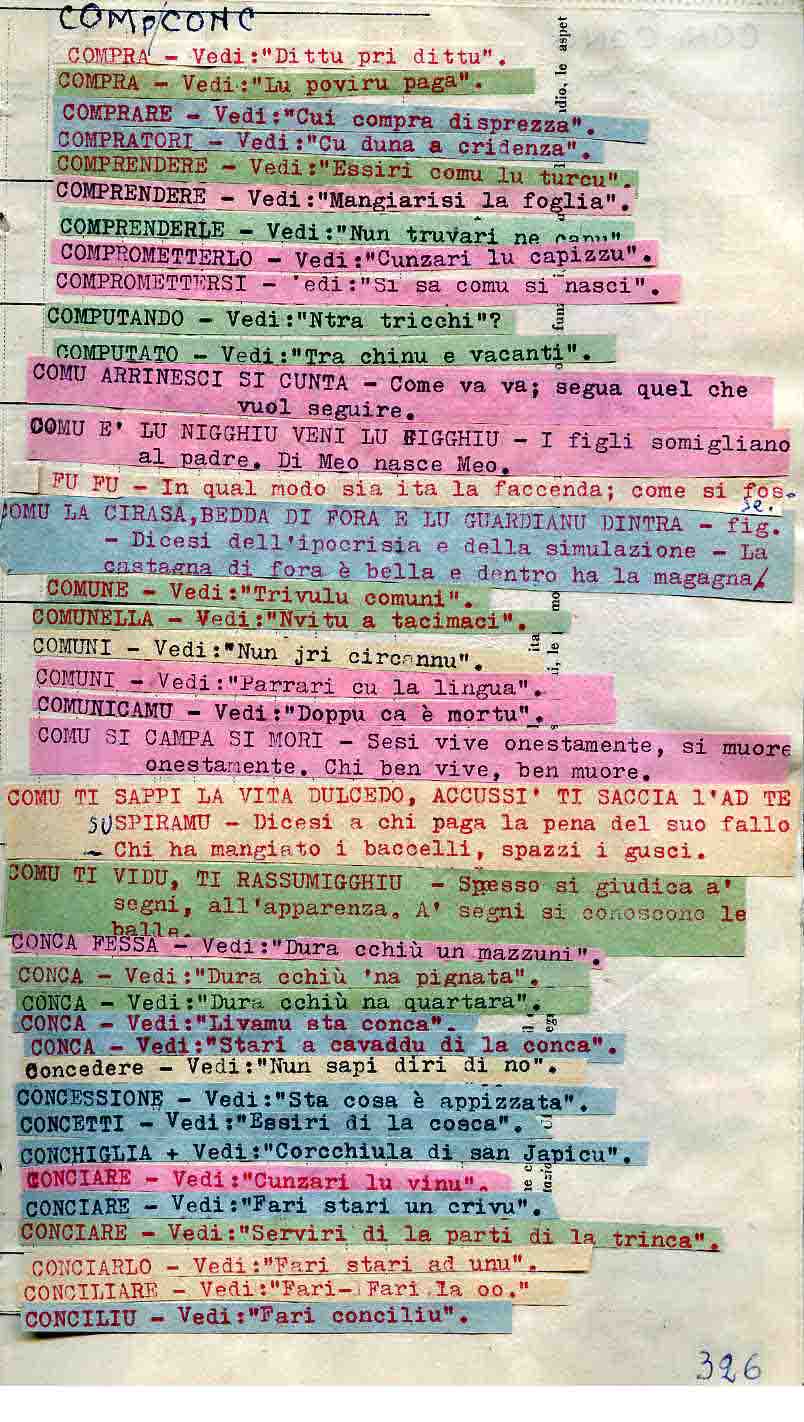 COMPCONC
COMPRA - Vedi:"Dittu pri dittu".
COMPRA - Vedi:"Lu poviru paga".
COMPRARE - Vedi:"Cui compra disprezza".
COMPRATORI - Vedi:"Cu duna a cridenza".
COMPRENDERE - Vedi:"Essiri comu lu turcu".
COMPRENDERE - Vedi:"Mangiarisi la foglia".
COMPRENDERLE - Vedi:"Nun truvari ne capu"
COMPROMETTERLO - Vedi:"Cunzari lu capizzu".
COMPROMETTERSI - edi:"Si sa comu si nasci".
COMPUTANDO - Vedi:"Ntra tricchi"?
COMPUTATO - Vedi:"Tra chinu e vacanti".
COMU ARRINESCI SI CUNTA - Come va va; segua quel che
vuol seguire.
COMU E' LU NIGGHIU VENI LU FIGGHIU - I figli somigliano
al padre. Di Meo nasce Meo.
FU FU - In qual modo sia ita la faccenda; come si fos-
se.
OMU LA CIRASA,BEDDA DI FORA E LU GUARDIANU DINTRA - fig.
- Dicesi dell'ipocrisia e della simulazione - La
castagna di fora è bella e dentro ha la magagna/
COMUNE - Vedi:"Trivulu comuni".
COMUNELLA - Vedi:"Nvitu a tacimaci".
COMUNI - Vedi:"Nun jri circannu".
COMUNI - Vedi:"Parrari cu la lingua".
COMUNICAMU - Vedi:"Doppu ca è mortu".
COMU SI CAMPA SI MORI - Sesi vive onestamente, si muore
onestamente. Chi ben vive, ben muore.
COMU TI SAPPI LA VITA DULCEDO, ACCUSSI' TI SACCIA l'AD TE
SUSPIRAMU - Dicesi a chi paga la pena del suo fallo
- Chi ha mangiato i baccelli, spazzi i gusci.
COMU TI VIDU, TI RASSUMIGGHIU - Spesso si giudica a'
segni, all'apparenza. A' segni si conoscono le
balle.
CONCA FESSA - Vedi:"Dura cchiù un mazzuni".
CONCA - Vedi:"Dura cchiù 'na pignata".
CONCA - Vedi:"Dura cchiù na quartara".
CONCA - Vedi:"Livamu sta conca".
CONCA - Vedi:"Stari a cavaddu di la conca".
Concedere - Vedi:"Nun sapi diri di no".
CONCESSIONE - Vedi:"Sta cosa è appizzata".
CONCETTI - Vedi:"Essiri di la cosca".
CONCHIGLIA + Vedi:"Corcchiula di san Japicu".
CONCIARE - Vedi:"Cunzari lu vinu".
CONCIARE - Vedi:"Fari stari un crivu".
CONCIARE - Vedi:"Serviri di la parti di la trinca".
CONCIARLO - Vedi:"Fari stari ad unu".
CONCILIARE - Vedi:"Fari- Fari la oo."
CONCILIU - Vedi:"Fari conciliu".
326